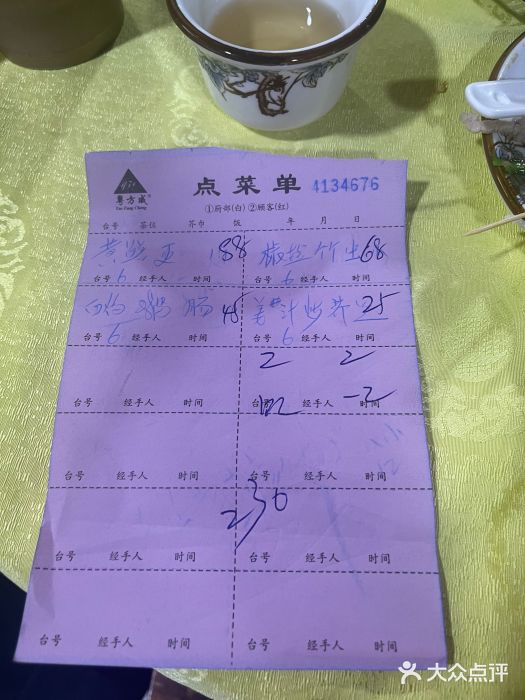 粤方成®
Yue Fang Cheng
点菜单 4134676
①厨部(白) ②顾客(红)
台号 茶位 芥巾 饭 年 月 日
88 68
6 6
台号 经手人 时间 台号 经手人 时间
肠 45 姜汁炒芥兰 25
6 6
台号 经手人 时间 台号 经手人 时间
2 2
台号 经手人 时间 台号 经手人 时间
-2
台号 经手人 时间 台号 经手人 时间
236
台号 经手人 时间 台号 经手人 时间
台号 经手人 时间 台号 经手人 时间
大众点评